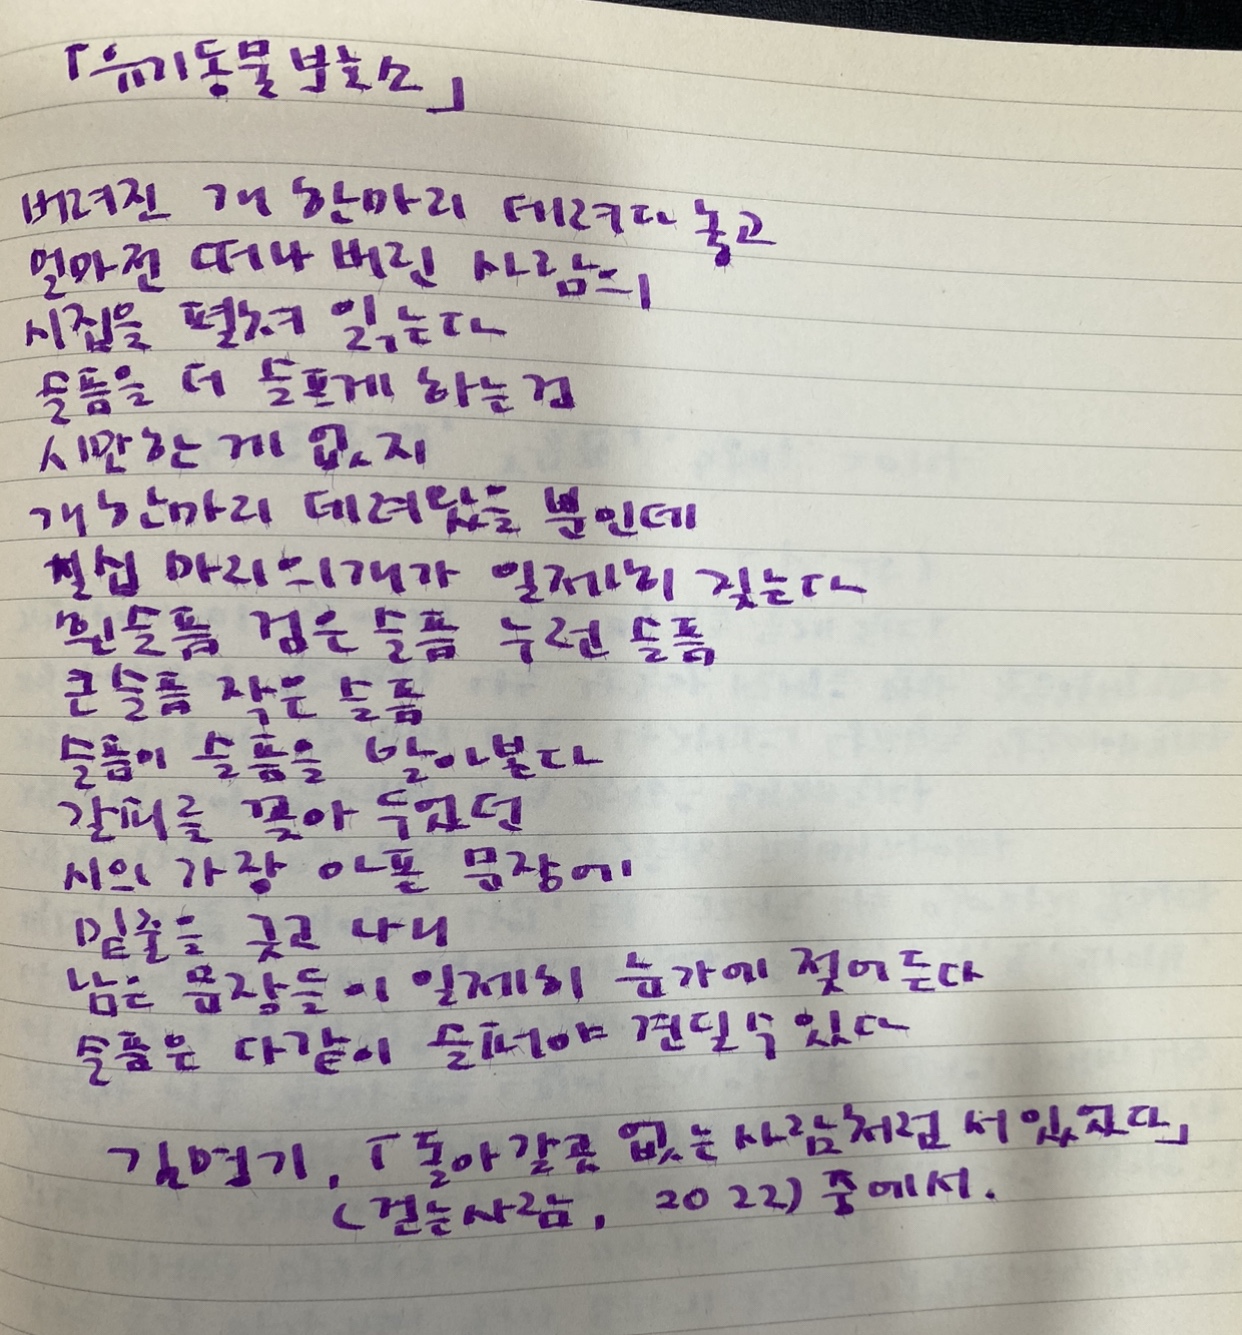 「유기동물 보호소」
버려진 개 한마리 데려다 놓고
얼마전 떠나 버린 사람의
시집을 펼쳐 읽는다
슬픔을 더 슬프게 하는 건
시만한 게 없지
개 한마리 데려왔을 뿐인데
칠십 마리의 개가 일제히 짖는다
흰 슬픔 검은 슬픔 누런 슬픔
큰 슬픔 작은 슬픔
슬픔이 슬픔을 알아본다
갈피를 꽂아 두었던
시의 가장 아픈 문장에
밑줄을 긋고 나니
남은 문장들이 일제히 눈가에 젖어든다
슬픔은 다같이 슬퍼야 견딜 수 있다
김명기, 「돌아갈 곳 없는 사람처럼 서 있었다」
(걷는사람, 2022) 중에서.